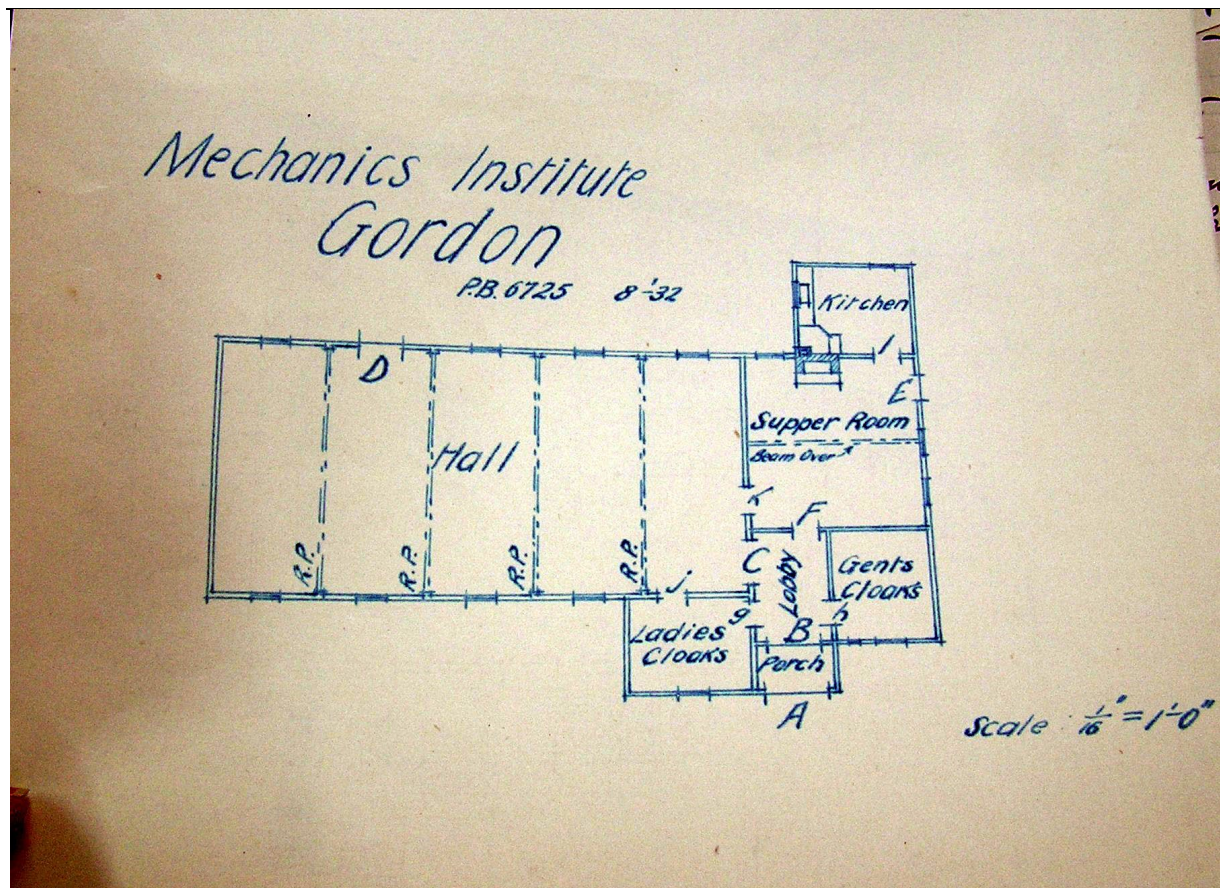 Mechanics Institute
Gordon
P.B. 6725 8-'32
Kitchen
l
D
E
Supper Room
Beam Over
Hall
K
F
R.P. R.P. R.P. R.P.
C
Lobby
Gents
Cloaks
j
g
h
B
Ladies
Cloaks
Porch
A
Scale 1/16" = 1'-0"